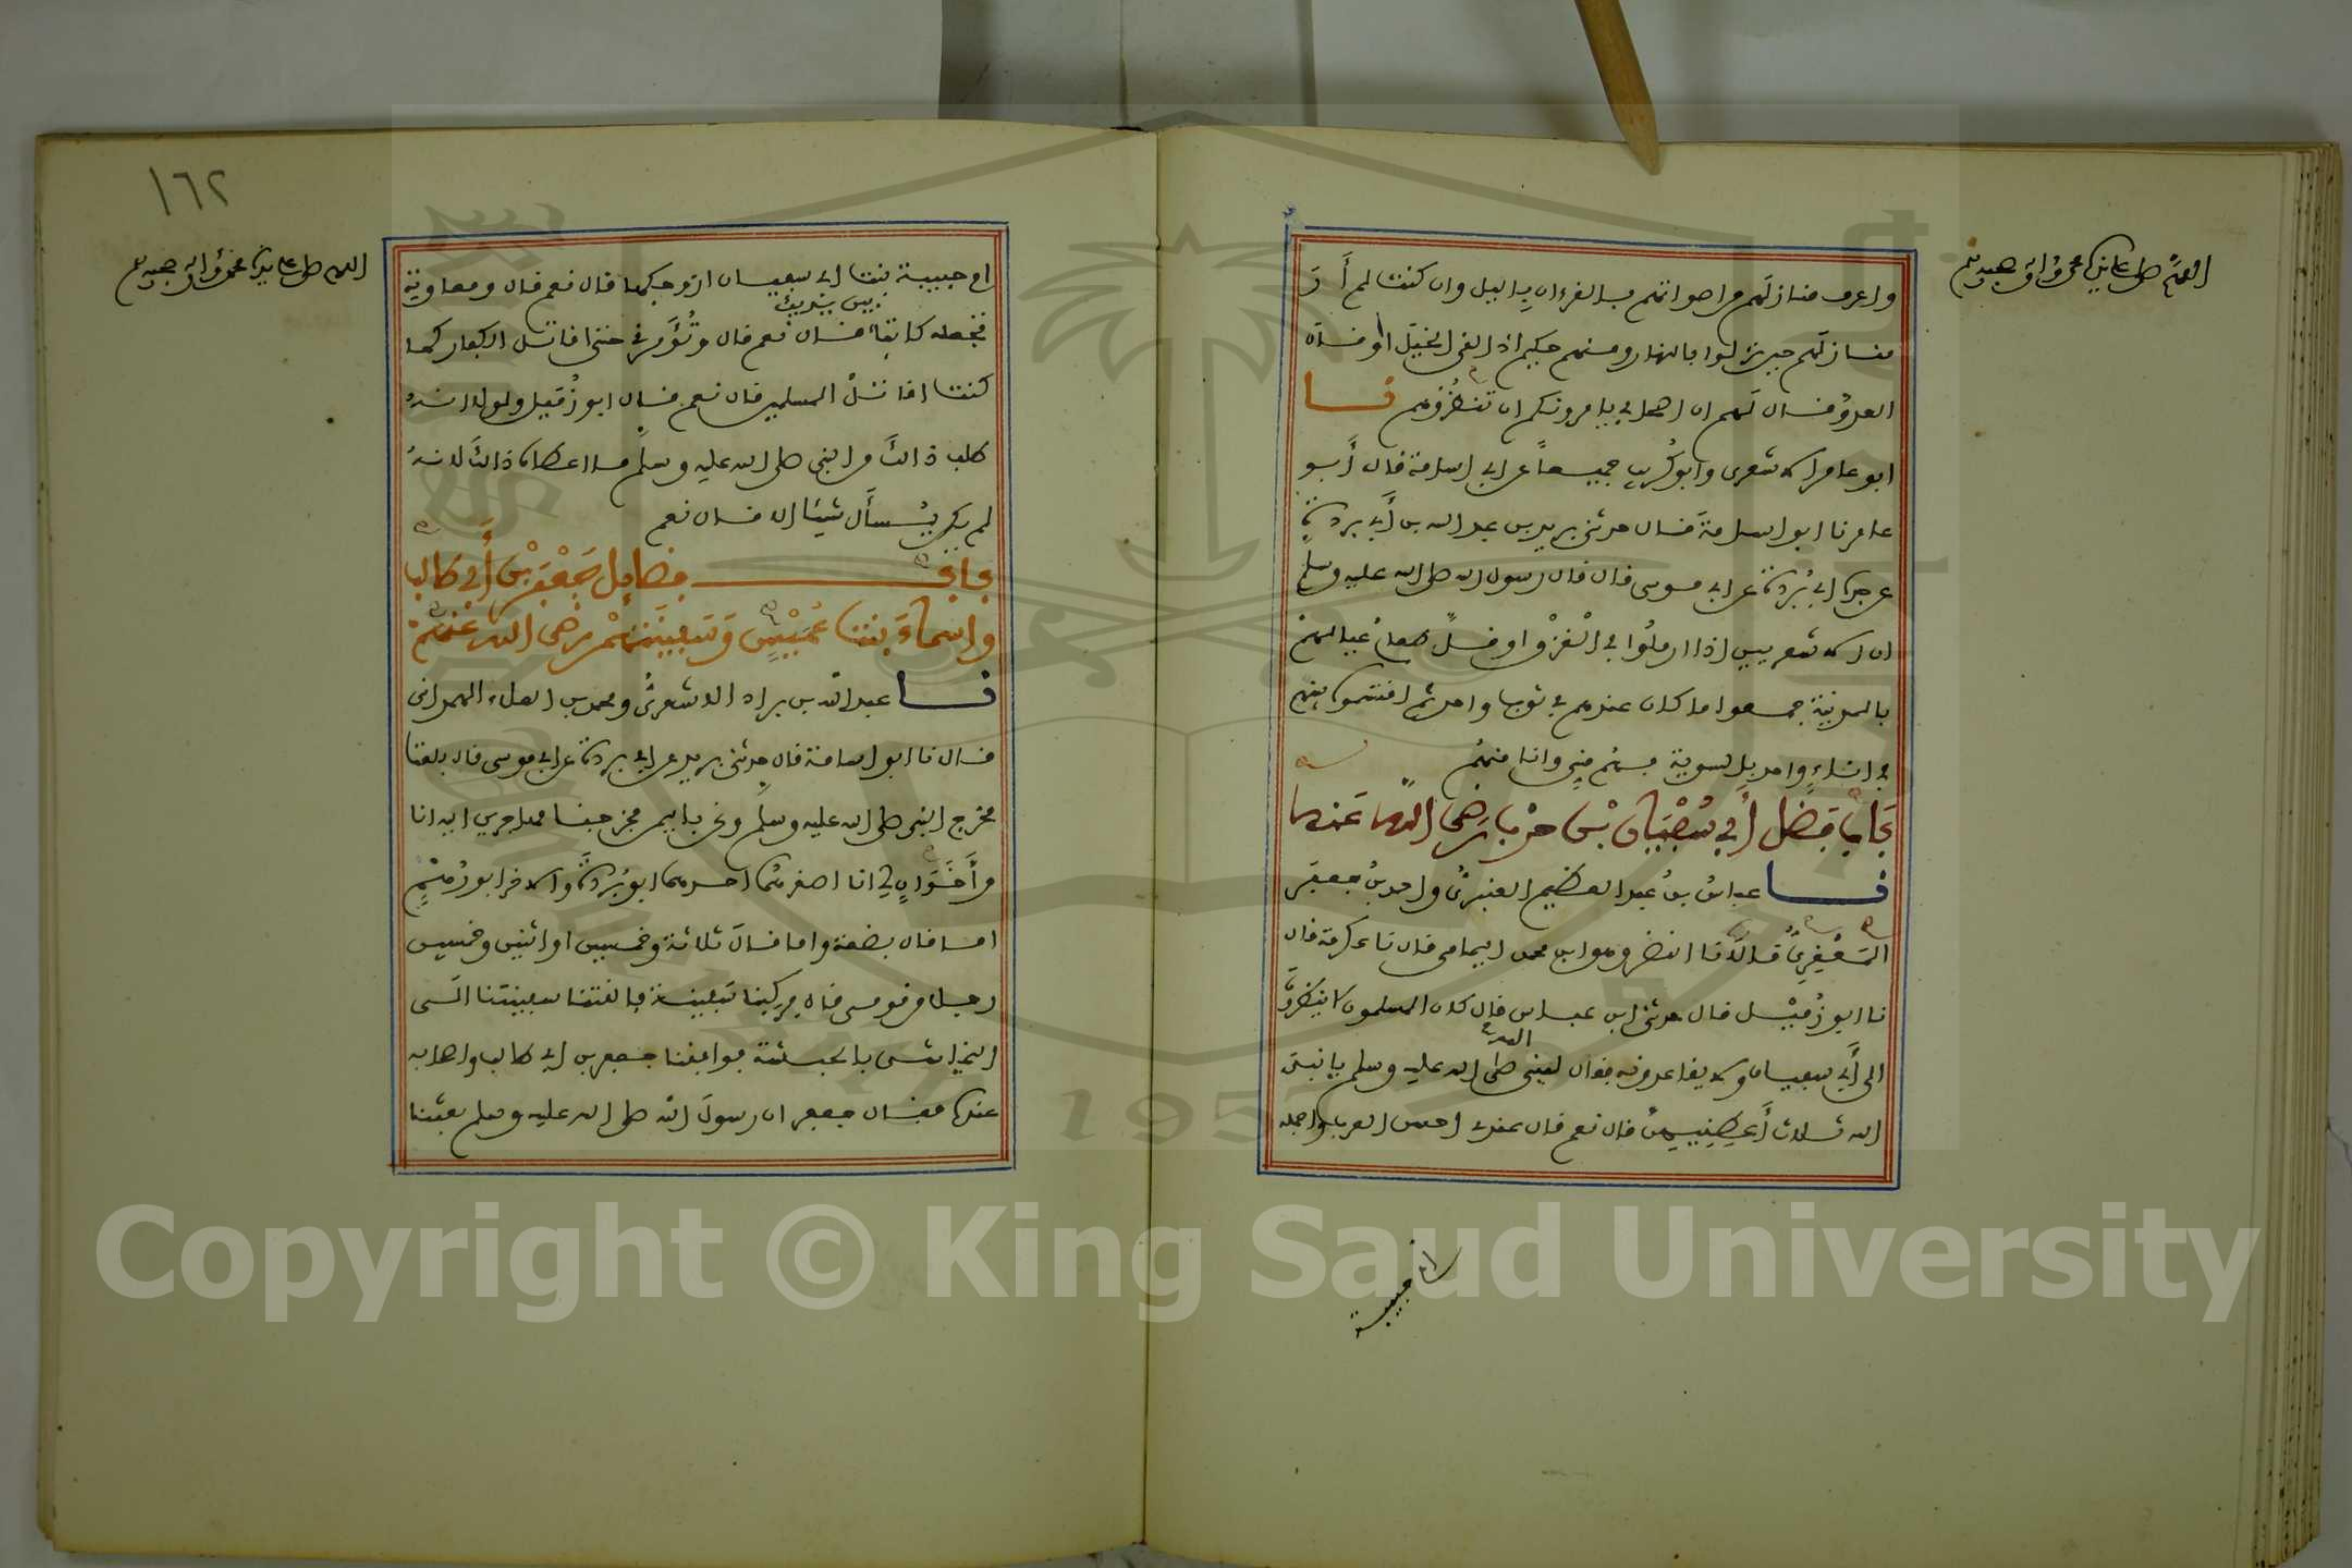 واعرف منازلهم من اصواتهم بالقرءان بالليل وان كنت لم أرَ
منازلهم حين نزلوا بالنهار ومنهم حكيم اذا لقى الخيل او قال
العدوّ قال لهم ان اصحابي يامرونكم ان تنظروهم نا
ابو عامر الاشعرى وابو كُريب جميعاً عن ابي اسامة قال أبو
عامر نا ابو اسامة قال حدثنى بريد بن عبد الله بن أبي بردة
عن جده ابي بُردة عن ابي موسى قال قال رسول الله صلى الله عليه وسلم
ان الاشعريين اذا ارملُوا في الغزْو او قلّ طعامُ عيالهم
بالمدينة جمعوا ما كان عندهم في ثوب واحد ثم اقتسموه بينهم
في اناءٍ واحد بالسوية فهم منى وانا منهم
بَاب فَضل أبي سُفْيَان بْن حرْب رَضى الله عَنه
نا عباسُ بنُ عبد العظيم العنبرىُّ واحمد بنُ جعفر
المَعْقِرِىُّ قالا نا النضر وهو ابن محمد اليمامى قال نا عكرمة قال
نا ابو زُميْل قال حدثنى ابن عباس قال كان المسلمون لا ينظرون
الى أبي سفيان ولا يقاعدونه فقال للنبى صلى الله عليه وسلم يا نبىَّ
الله ثلاث أَعطِنِيهِنّ قال نعم قال عندى احسن العرب واجمله
ام حبيبة
١٦٢
ام حبيبة بنت ابي سفيان ازوجكها قال نعم قال ومعاوية
بين يديك
تجعله كاتبا قال نعم قال وتُؤَمّرنى حتى اقاتل الكفار كما
كنت اقاتلُ المسلمين قال نعم قال ابو زُميل ولولا انهُ
طلب ذالكَ من النبى صلى الله عليه وسلم ما اعطاه ذالكَ لانهُ
لم يكن يُسأَل شيئا الا قال نعم
باب فضايل جَعْفر بْن أبي طالب
واسماءَ بنت عُمَيْسٍ وَسَفِينَتِهمْ رضى الله عنهم
نا عبد الله بن براد الاشعرىُّ ومحمد بن العلاء الهمدانى
قال نا ابو اسامة قال حدثنى بريد عن ابي بردة عن ابي موسى قال بلغنا
مخرج النبى صلى الله عليه وسلم ونحن باليمن فخرجنا مهاجرين اليه انا
وأَخَوَانِ لي انا اصغرهما احدهما ابو بُردة والاخر ابو رُهْمٍ
اما قال بضعة واما قال ثلاثة وخمسين او اثنين وخمسين
رجلا من قومى قال فركبنا سفينة فالقتنا سفينتنا الى
النجاشى بالحبشة فوافقنا جعفر بن ابي طالب واصحابه
عنده فقال جعفر ان رسولَ الله صلى الله عليه وسلم بعثنا